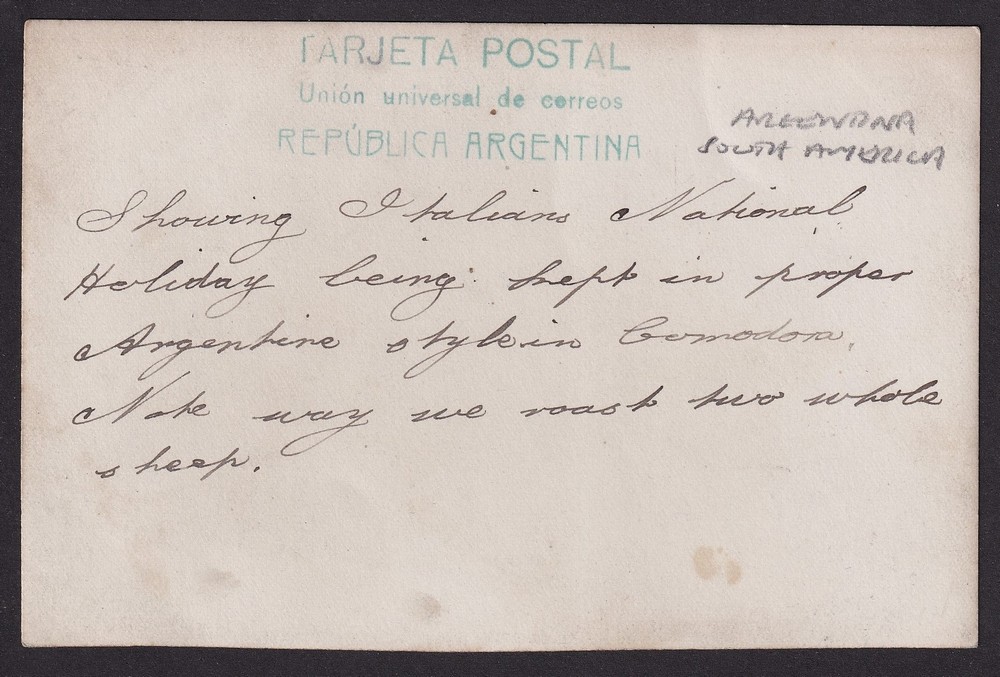 TARJETA POSTAL
Unión universal de correos
REPÚBLICA ARGENTINA
ARGENTINA
SOUTH AMERICA
Showing Italians National
Holiday being kept in proper
Argentine style in Comodora.
Note way we roast two whole
sheep.